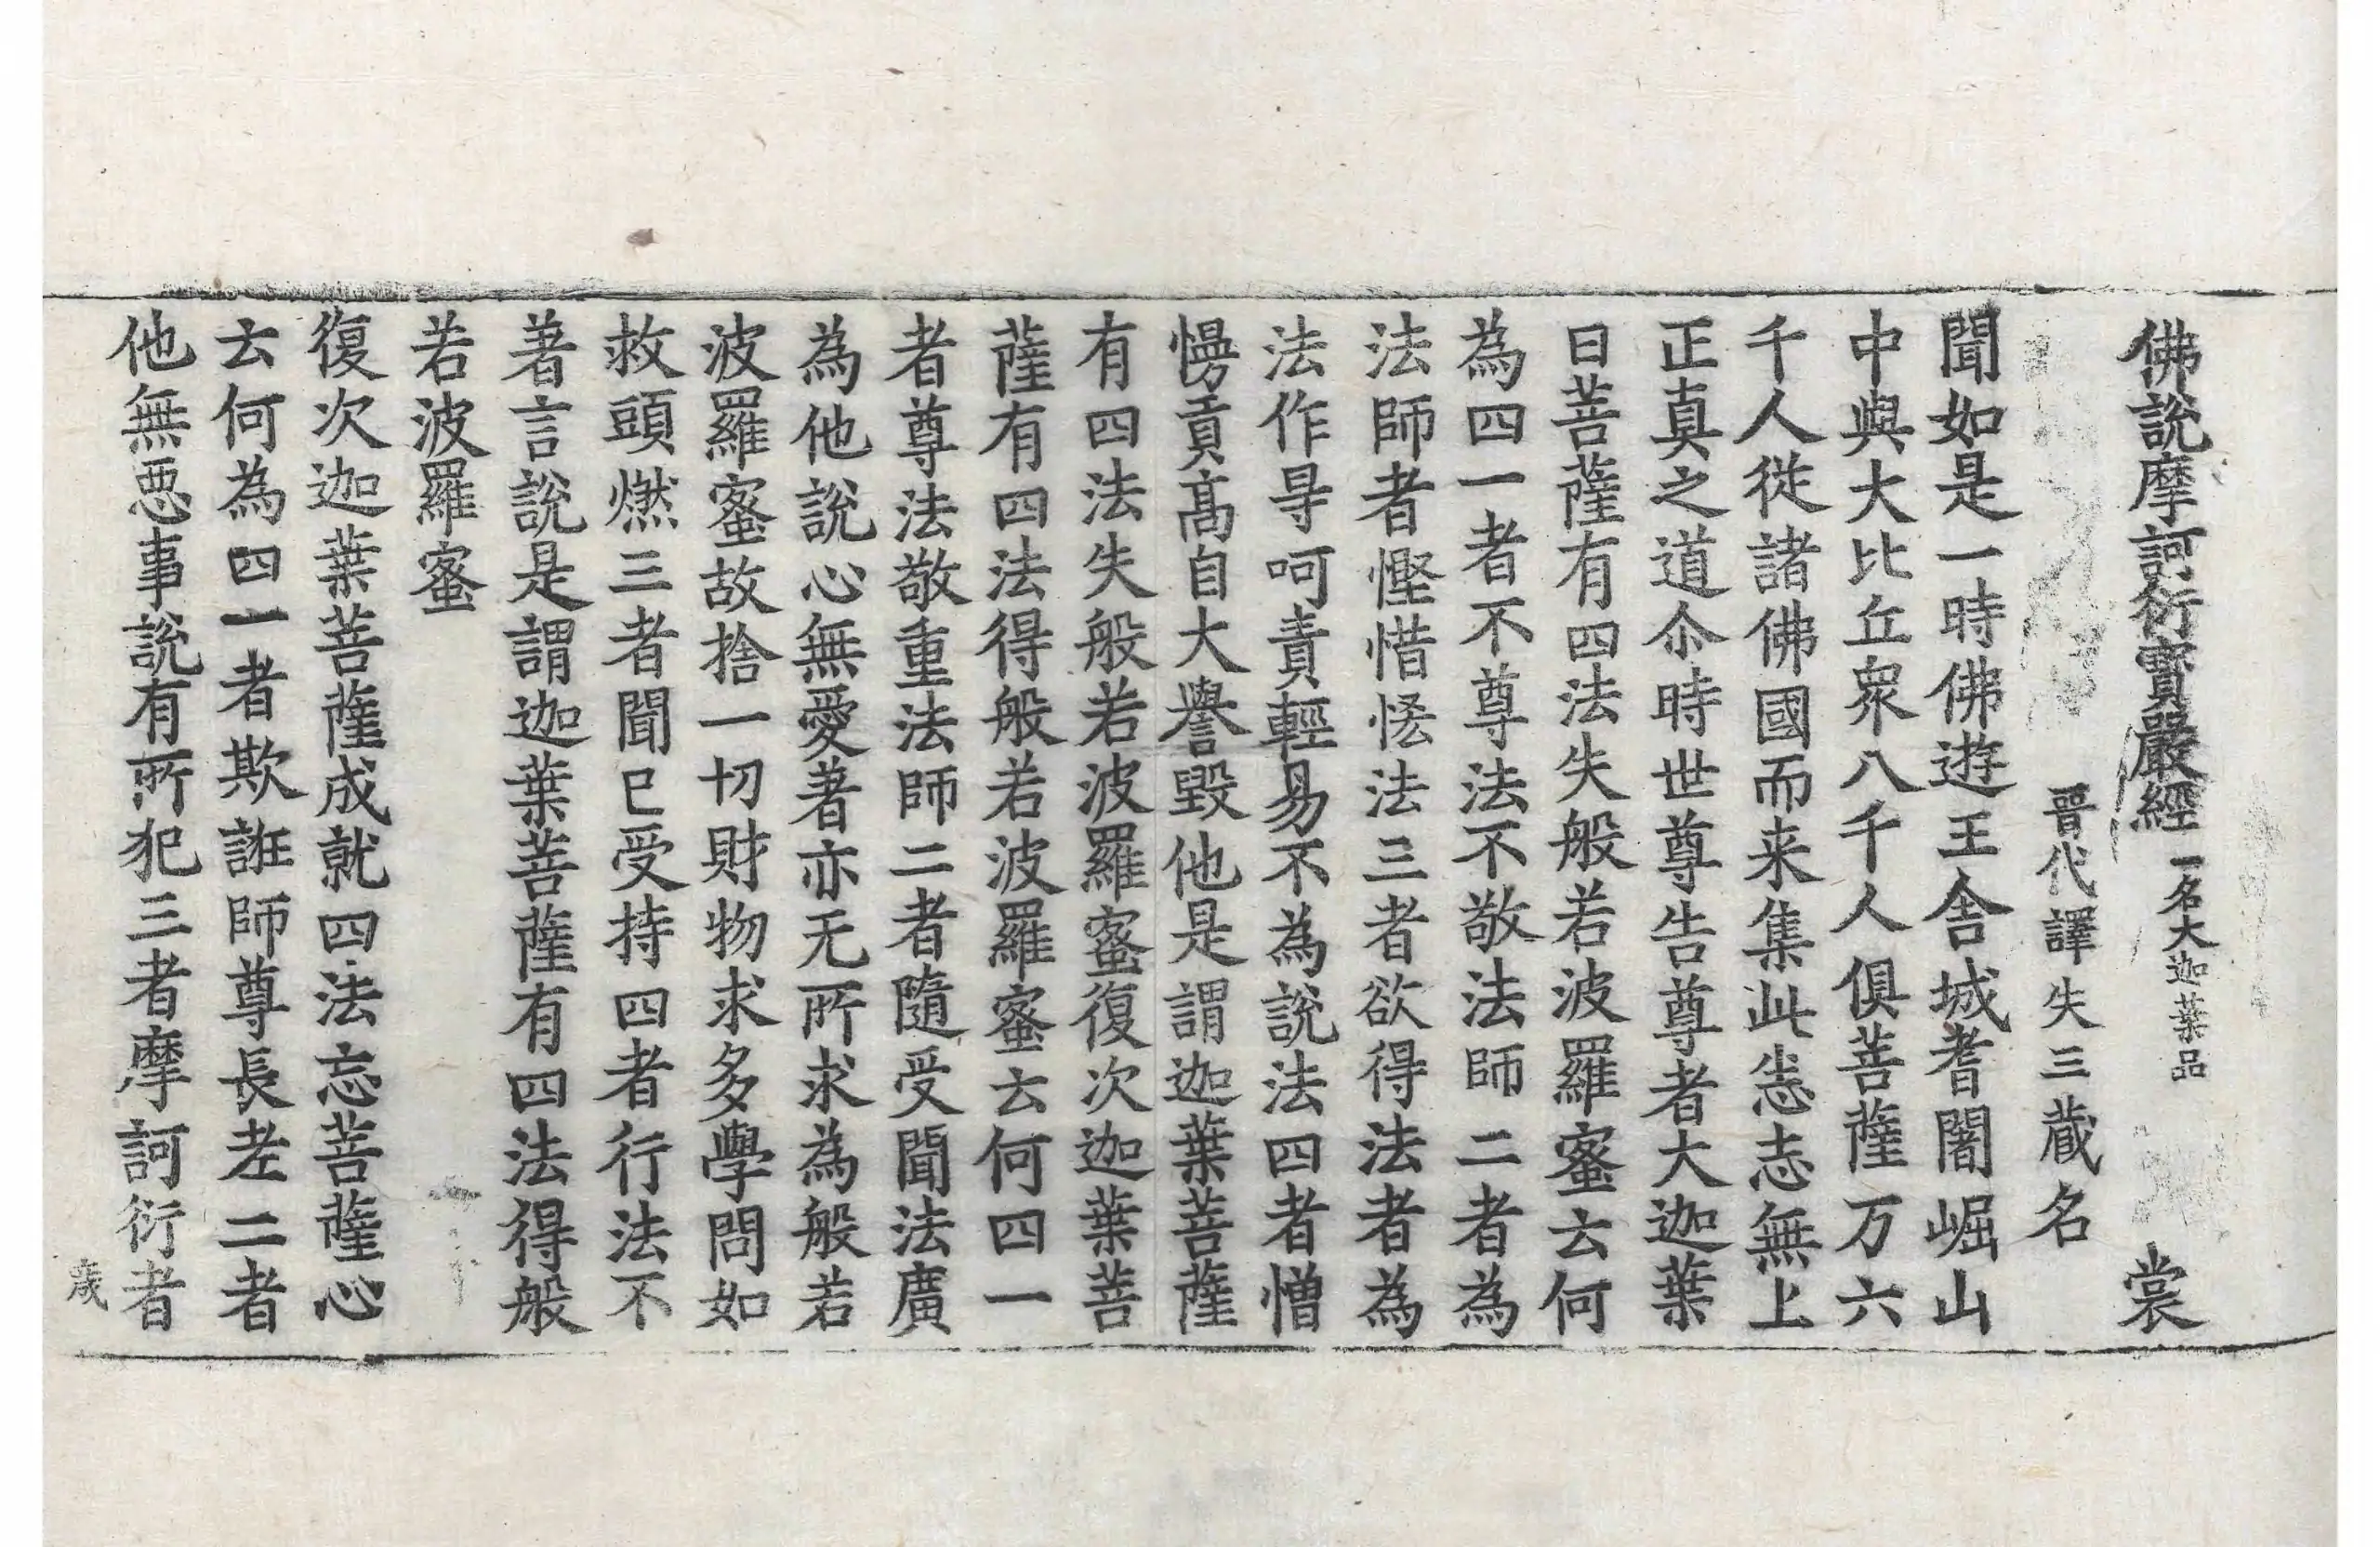 佛說摩訶衍寶嚴經一名大迦葉品 裳
晉代譯失三藏名
聞如是一時佛遊王舍城耆闍崛山
中與大比丘衆八千人俱菩薩万六
千人從諸佛國而来集此悉志無上
正真之道尒時世尊告尊者大迦葉
曰菩薩有四法失般若波羅蜜云何
為四一者不尊法不敬法師二者為
法師者慳惜悋法三者欲得法者為
法作㝵呵責輕易不為說法四者憎
慢貢髙自大譽毀他是謂迦葉菩薩
有四法失般若波羅蜜復次迦葉菩
薩有四法得般若波羅蜜云何四一
者尊法敬重法師二者隨受聞法廣
為他說心無愛著亦无所求為般若
波羅蜜故捨一切財物求多學問如
救頭燃三者聞已受持四者行法不
著言說是謂迦葉菩薩有四法得般
若波羅蜜
復次迦葉菩薩成就四法忘菩薩心
云何為四一者欺誑師尊長老二者
他無惡事說有所犯三者摩訶衍者
歲